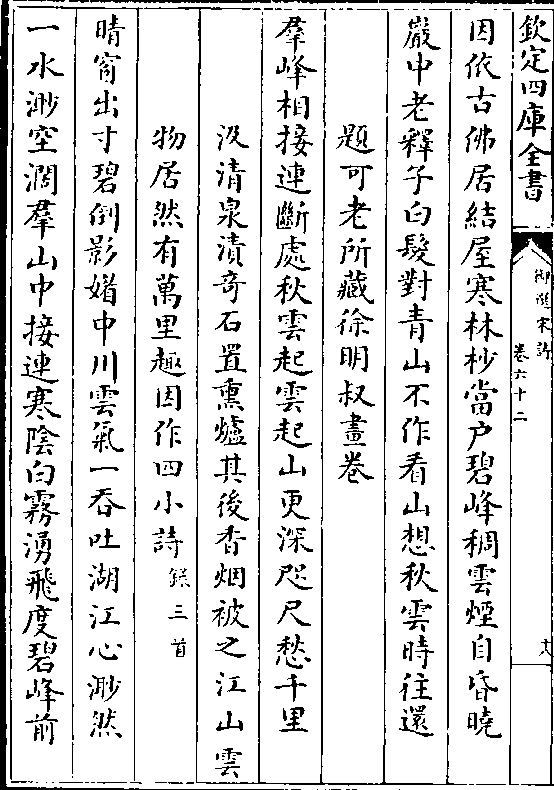 欽定四庫全書
御選宋詩
卷六十二
十八
因依古佛居結屋寒林杪當户碧峰稠雲煙自昏曉
巖中老釋子白髮對青山不作看山想秋雲時往還
題可老所藏徐明叔畫卷
羣峰相接連斷處秋雲起雲起山更深咫尺愁千里
汲清泉漬奇石置熏爐其後香烟被之江山雲
物居然有萬里趣因作四小詩録三首
晴窗出寸碧倒影媚中川雲氣一吞吐湖江心渺然
一水渺空濶羣山中接連寒陰白霧湧飛度碧峰前